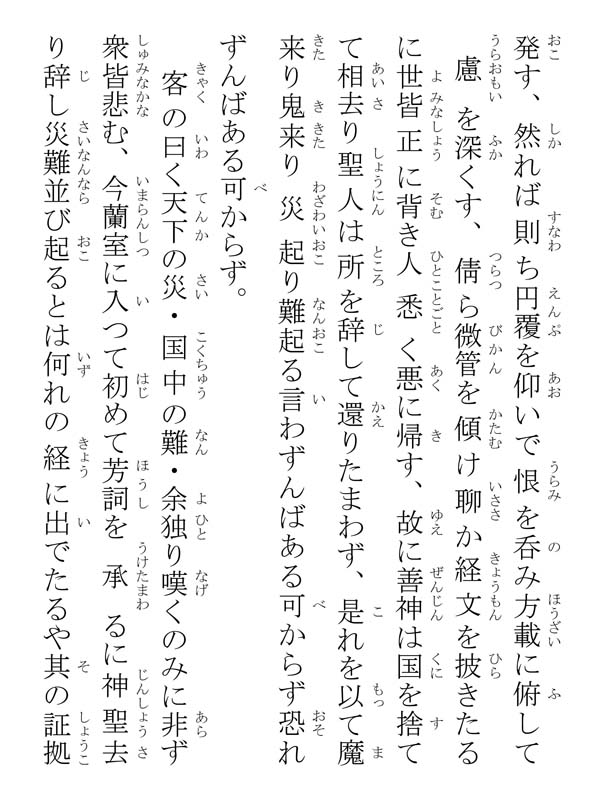 発す、然れば則ち円覆を仰いで恨を呑み方載に俯して
慮を深くす、倩ら微管を傾け聊か経文を披きたる
に世皆正に背き人悉く悪に帰す、故に善神は国を捨て
て相去り聖人は所を辞して還りたまわず、是れを以て魔
来り鬼来り災起り難起る言わずんばある可からず恐れ
ずんばある可からず。
客の曰く天下の災・国中の難・余独り嘆くのみに非ず
衆皆悲む、今蘭室に入つて初めて芳詞を承るに神聖去
り辞し災難並び起るとは何れの経に出でたるや其の証拠